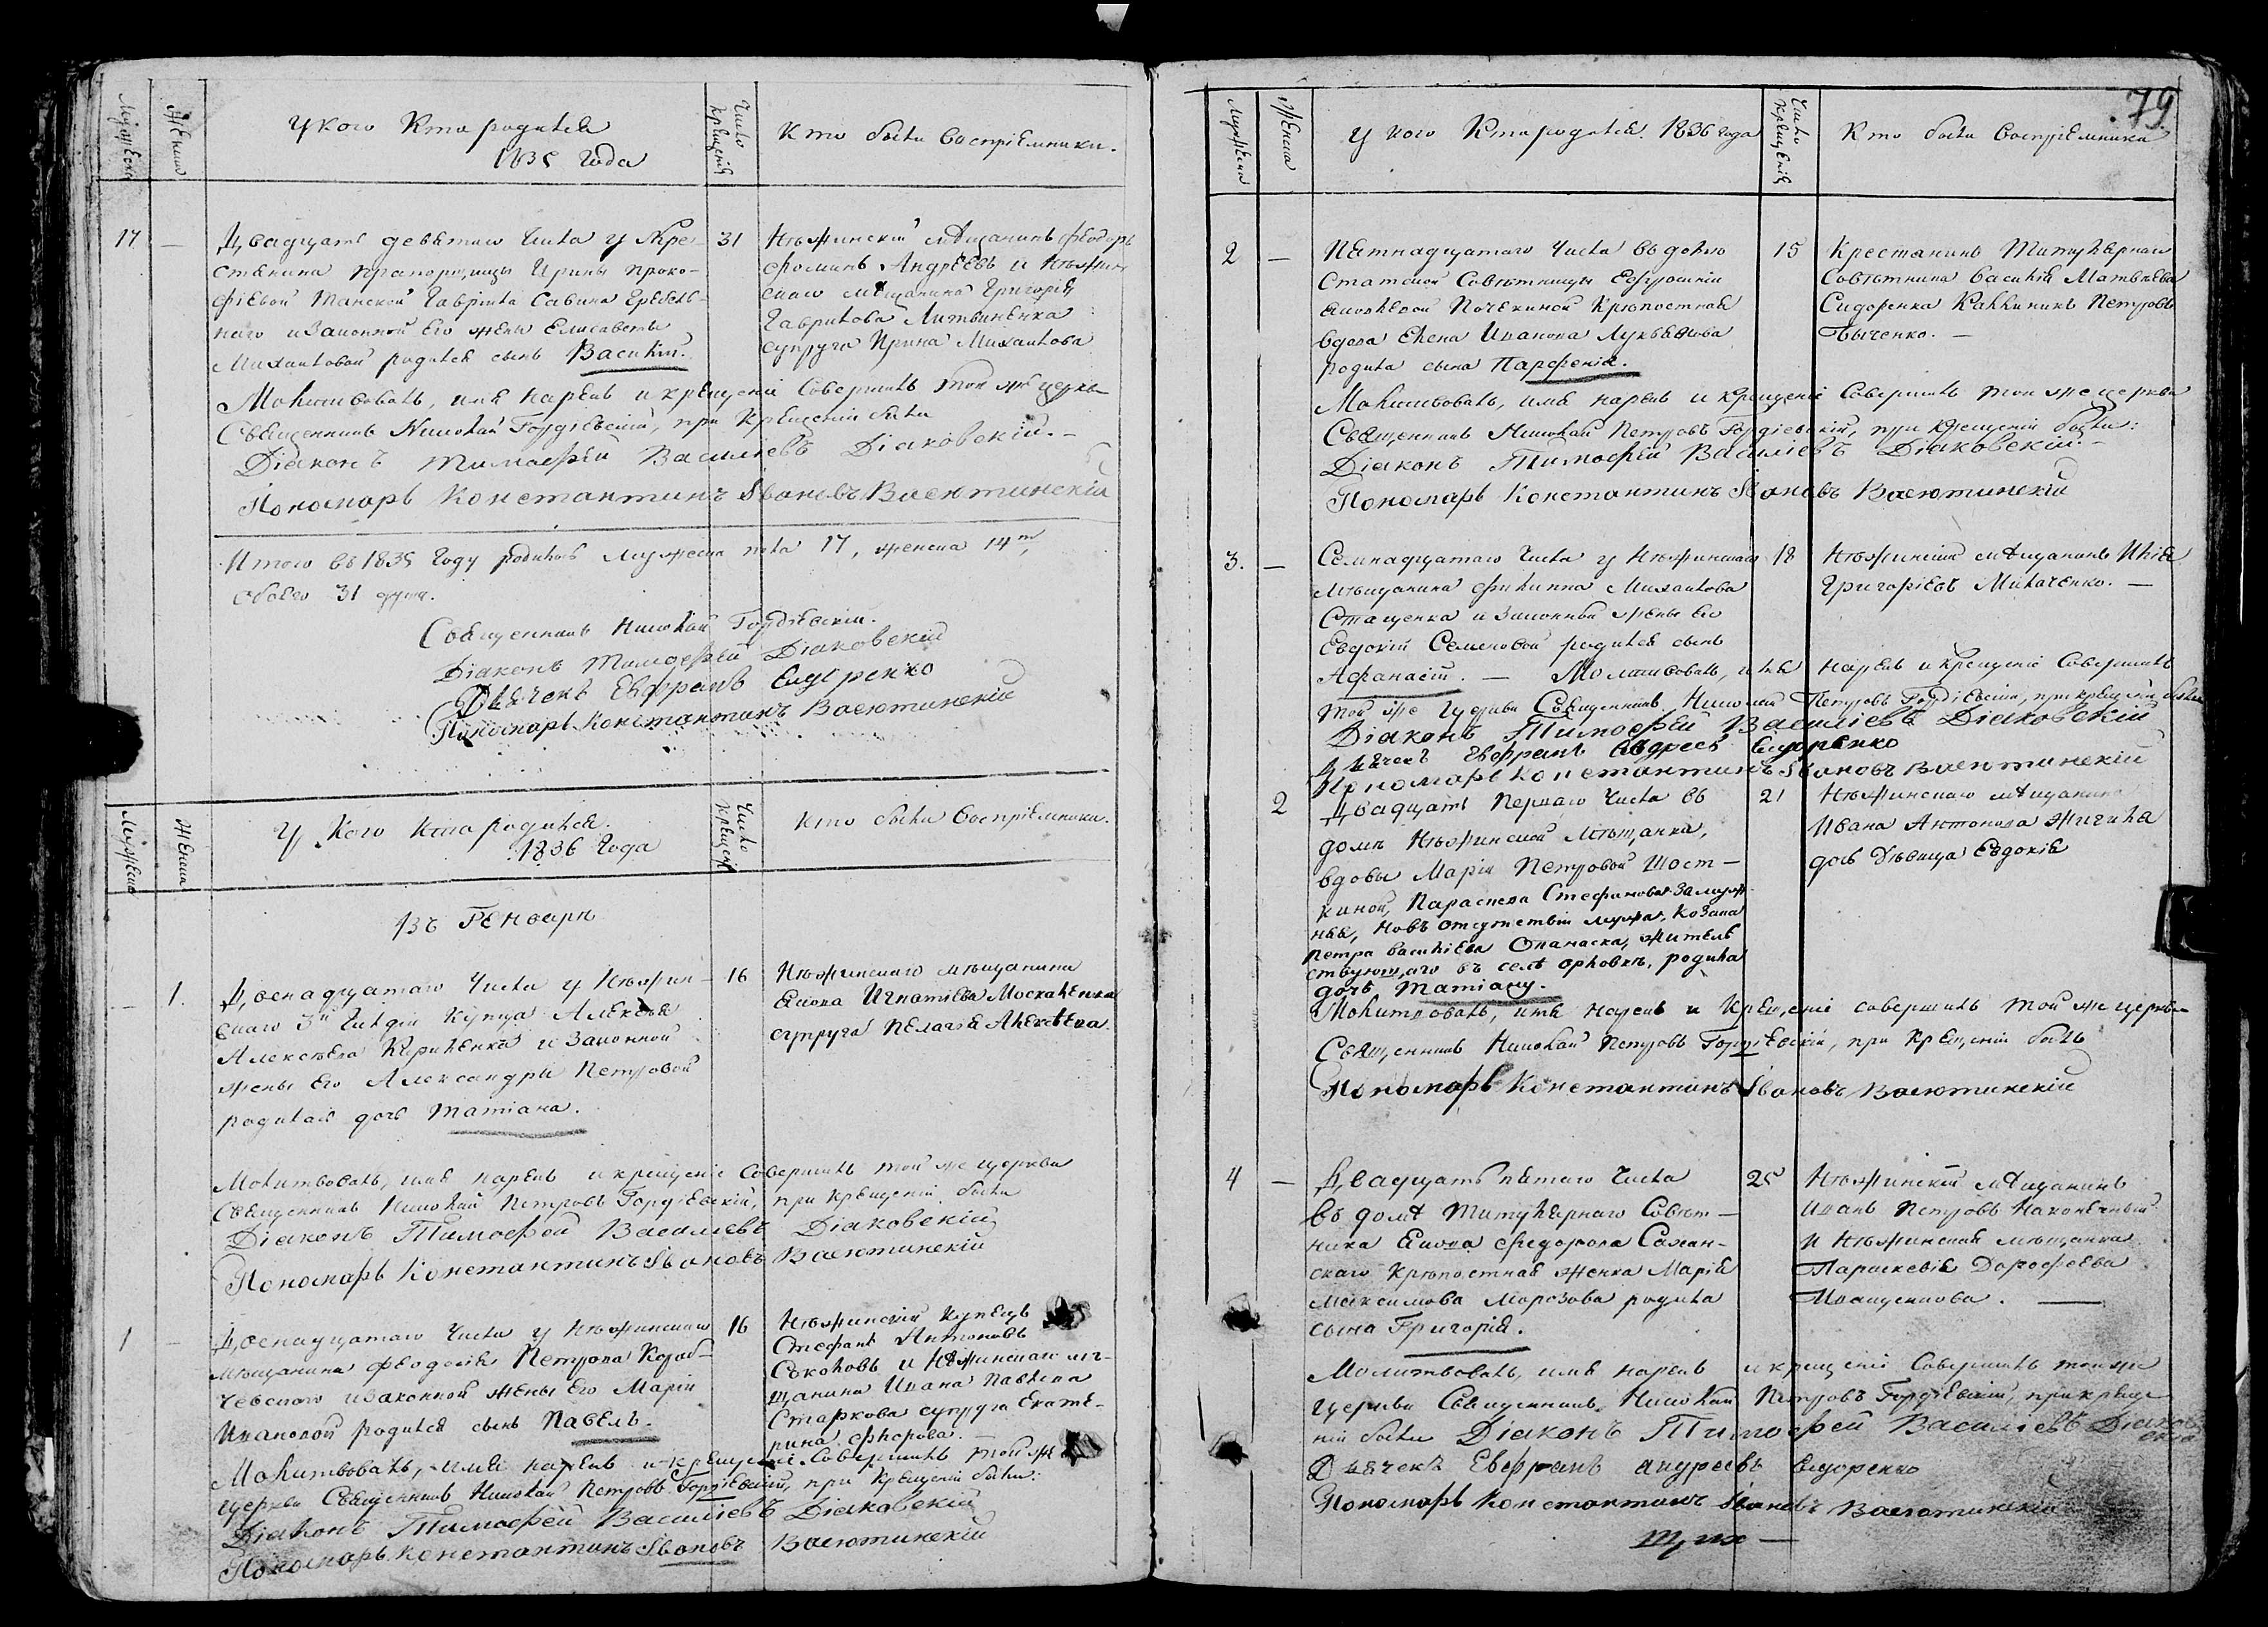 Мужеска
Женска
У кого кто родился
1835 года
Число крещенія
Кто были воспріемники.
17 —
Двадцать девятаго числа у кре-
стянина прапорщицы Ирины Проко-
фіевой Танской Гавріила Савина
наго и законной его жены Елисаветы
Михаиловой родился сынъ Василій.
31
Нѣжинскій мѣщанинъ Феодоръ
Фоминъ Андреевъ и Нѣжин-
скаго мѣщанина Григорія
Гаврилова Литвиненка
супруга Ирина Михаилова
Молитвовалъ, имя нарекъ и крещеніе совершилъ той же церкви
Священникъ Николай Гордіевскій, при крещеніи были
Діаконъ Тимофей Василіевъ Діаковскій. —
Пономарь Константинъ Івановъ Васютинскій
Итого въ 1835 году родилось мужеска пола 17, женска 14ть,
обоего 31 душа.
Священникъ Николай Гордіевскій.
Діаконъ Тимофей Діаковскій
Дьячекъ Евфранъ Сидоренко
Пономарь Константинъ Васютинскій
Мужеска
Женска
У кого кто родился.
1836 года
Число крещенія
Кто были воспріемники.
Въ Генварѣ
— 1.
Двенадцатаго числа у Нѣжин-
скаго 3й гильдіи купца Алексѣя
Алексѣева Кириленка и законной
жены его Александры Петровой
родилась дочь Татіана.
16
Нѣжинскаго мѣщанина
Якова Игнатіева Москаленка
супруга Пелагея Алексѣева
Молитвовалъ, имя нарекъ и крещеніе совершилъ той же церкви
Священникъ Николай Петровъ Гордіевскій, при крещеніи были
Діаконъ Тимофей Василіевъ Діаковскій
Пономарь Константинъ Івановъ Васютинскій
1 —
Двенадцатаго числа у Нѣжинскаго
мѣщанина Феодосія Петрова
и законной жены его Маріи
Ивановой родился сынъ Павелъ.
16
Нѣжинскій купецъ
Стефанъ Антоновъ
Соколовъ и Нѣжинскаго мѣ-
щанина Ивана Павлова
Старкова супруга Екате-
рина
Молитвовалъ, имя нарекъ и крещеніе совершилъ той же
церкви Священникъ Николай Петровъ Гордіевскій, при крещеніи были:
Діаконъ Тимофей Василіевъ Діаковскій
Пономарь Константинъ Івановъ Васютинскій
79
Мужеска
Женска
У кого кто родился. 1836 года
Число крещенія
Кто были воспріемники
2 —
Пятнадцатаго числа въ домѣ
Статской Совѣтницы Ефросиніи
Яковлевой Почекиной крѣпостная
вдова Елена Иванова
родила сына Парфенія.
15
Крестянинъ Титулярнаго
Совѣтника Василія Матвѣева
Сидоренка Каллиникъ Петровъ
Молитвовалъ, имя нарекъ и крещеніе совершилъ той же церкви
Священникъ Николай Петровъ Гордіевскій, при крещеніи были:
Діаконъ Тимофей Василіевъ Діаковскій. —
Пономарь Константинъ Івановъ Васютинскій
3. —
Семнадцатаго числа у Нѣжинскаго
мѣщанина Филиппа Михаилова
Стащенка и законной жены его
Евдокіи Семеновой родился сынъ
18
Нѣжинскій мѣщанинъ Илія
Григоріевъ Милаченко. —
Афанасій. — Молитвовалъ, имя нарекъ и крещеніе совершилъ
той же церкви Священникъ Николай Петровъ Гордіевскій, при крещеніи были
Діаконъ Тимофей Василіевъ Діаковскій
Дьячекъ Евфранъ Андреевъ Сидоренко
Пономарь Константинъ Івановъ Васютинскій
2
Двадцать перваго числа въ
домѣ Нѣжинской мѣщанки,
вдовы Маріи Петровой Шост-
киной, Параскева Стефанова замуж-
няя, но въ отсутствіи мужа, козака
Петра Василіева Опанаска, житель
ствующаго въ селѣ Орловкѣ, родила
дочь Татіану.
21
Нѣжинскаго мѣщанина
Ивана Антонова Жигила
дочь дѣвица Евдокія
Молитвовалъ, имя нарекъ и крещеніе совершилъ той же церкви
Священникъ Николай Петровъ Гордіевскій, при крещеніи былъ
Пономарь Константинъ Івановъ Васютинскій
4 —
Двадцать пятаго числа
въ домѣ Титулярнаго Совѣт-
ника Якова Федорова Сахан-
скаго крѣпостная женка Марія
Максимова Морозова родила
сына Григорія.
25
Нѣжинскій мѣщанинъ
Иванъ Петровъ Наконечный
и Нѣжинская мѣщанка
Параскевія Дорофеева
Иващенкова. —
Молитвовалъ, имя нарекъ и крещеніе совершилъ той же
церкви Священникъ Николай Петровъ Гордіевскій, при креще
ніи были Діаконъ Тимофей Василіевъ Діаков
скій
Дьячекъ Евфранъ Андреевъ Сидоренко
Пономарь Константинъ Івановъ Васютинскій